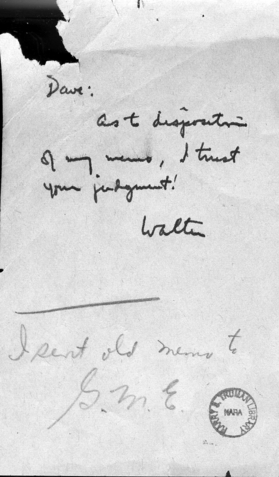 Dave:
As to disposition
of my memo, I trust
your judgment!
Walter
I sent old memo to
G.M.E.
HARRY S. TRUMAN LIBRARY
NARA